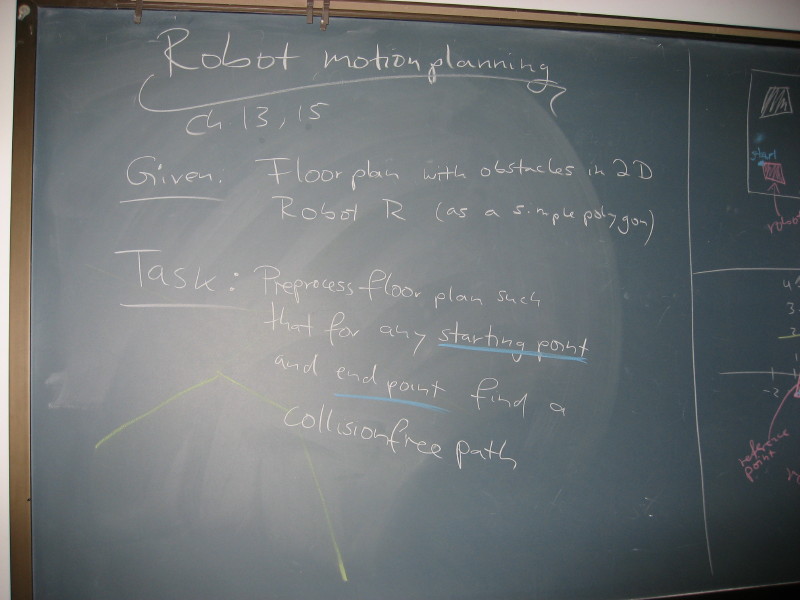 Robot motion planning
Ch 13, 15
Given: Floor plan with obstacles in 2D
Robot R (as a simple polygon)
Task: Preprocess floor plan such
that for any starting point
and end point find a
collisionfree path
start
robot
4
3
2
1
-2
reference
point